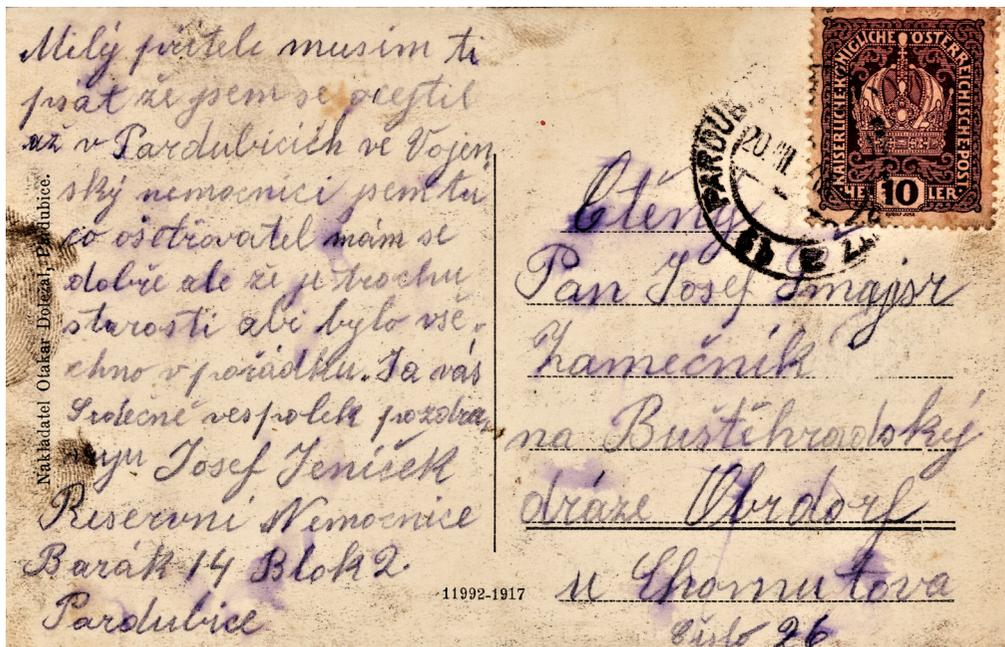 Milý příteli musím ti
psát že jsem se ocejtil
až v Pardubicích ve Vojen
ský nemocnici jsem tu
co ošetrovatel mám se
dobře ale že je trochu
starosti abi bylo vše-
chno v pořádku. Ja vás
Srdečně vespolek pozdra
vuju Josef Jeníček
Reservní Nemocnice
Barák 14 Blok 2.
Pardubice
Nakladatel Otakar Doležal, Pardubice.
11992-1917
KAISERLICHE KÖNIGLICHE ÖSTERREICHISCHE POST
HELLER
10
PARDUB
20.
Ctěný
Pan Josef Šmajsr
Zamečník
na Buštěhradský
dráze Obrdorf
u Chomutova
Číslo 26